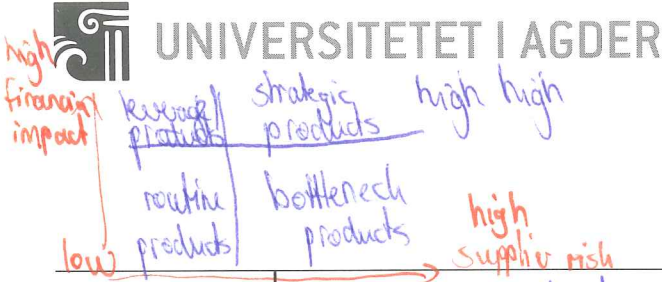 UNIVERSITETET I AGDER
high
financial
impact
leverage
products
strategic
products
high high
routine
products
bottleneck
products
high
supplier risk
low